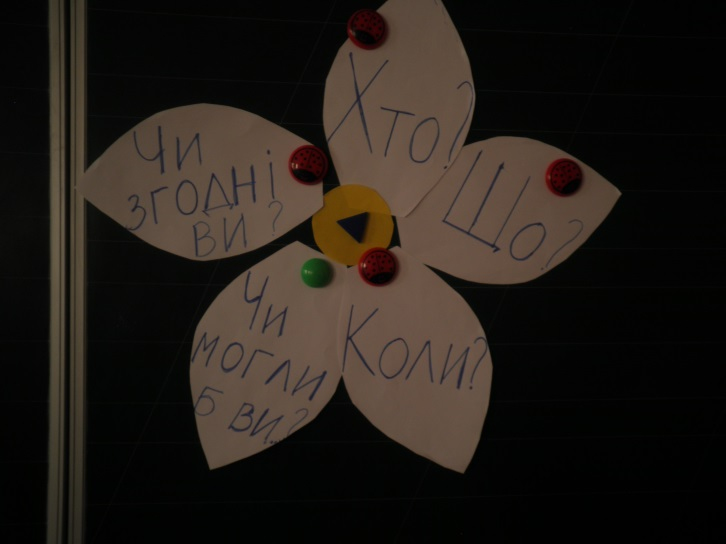 Хто?
Що?
Коли?
Чи
могли
б ви..?
Чи
згодні
ви?